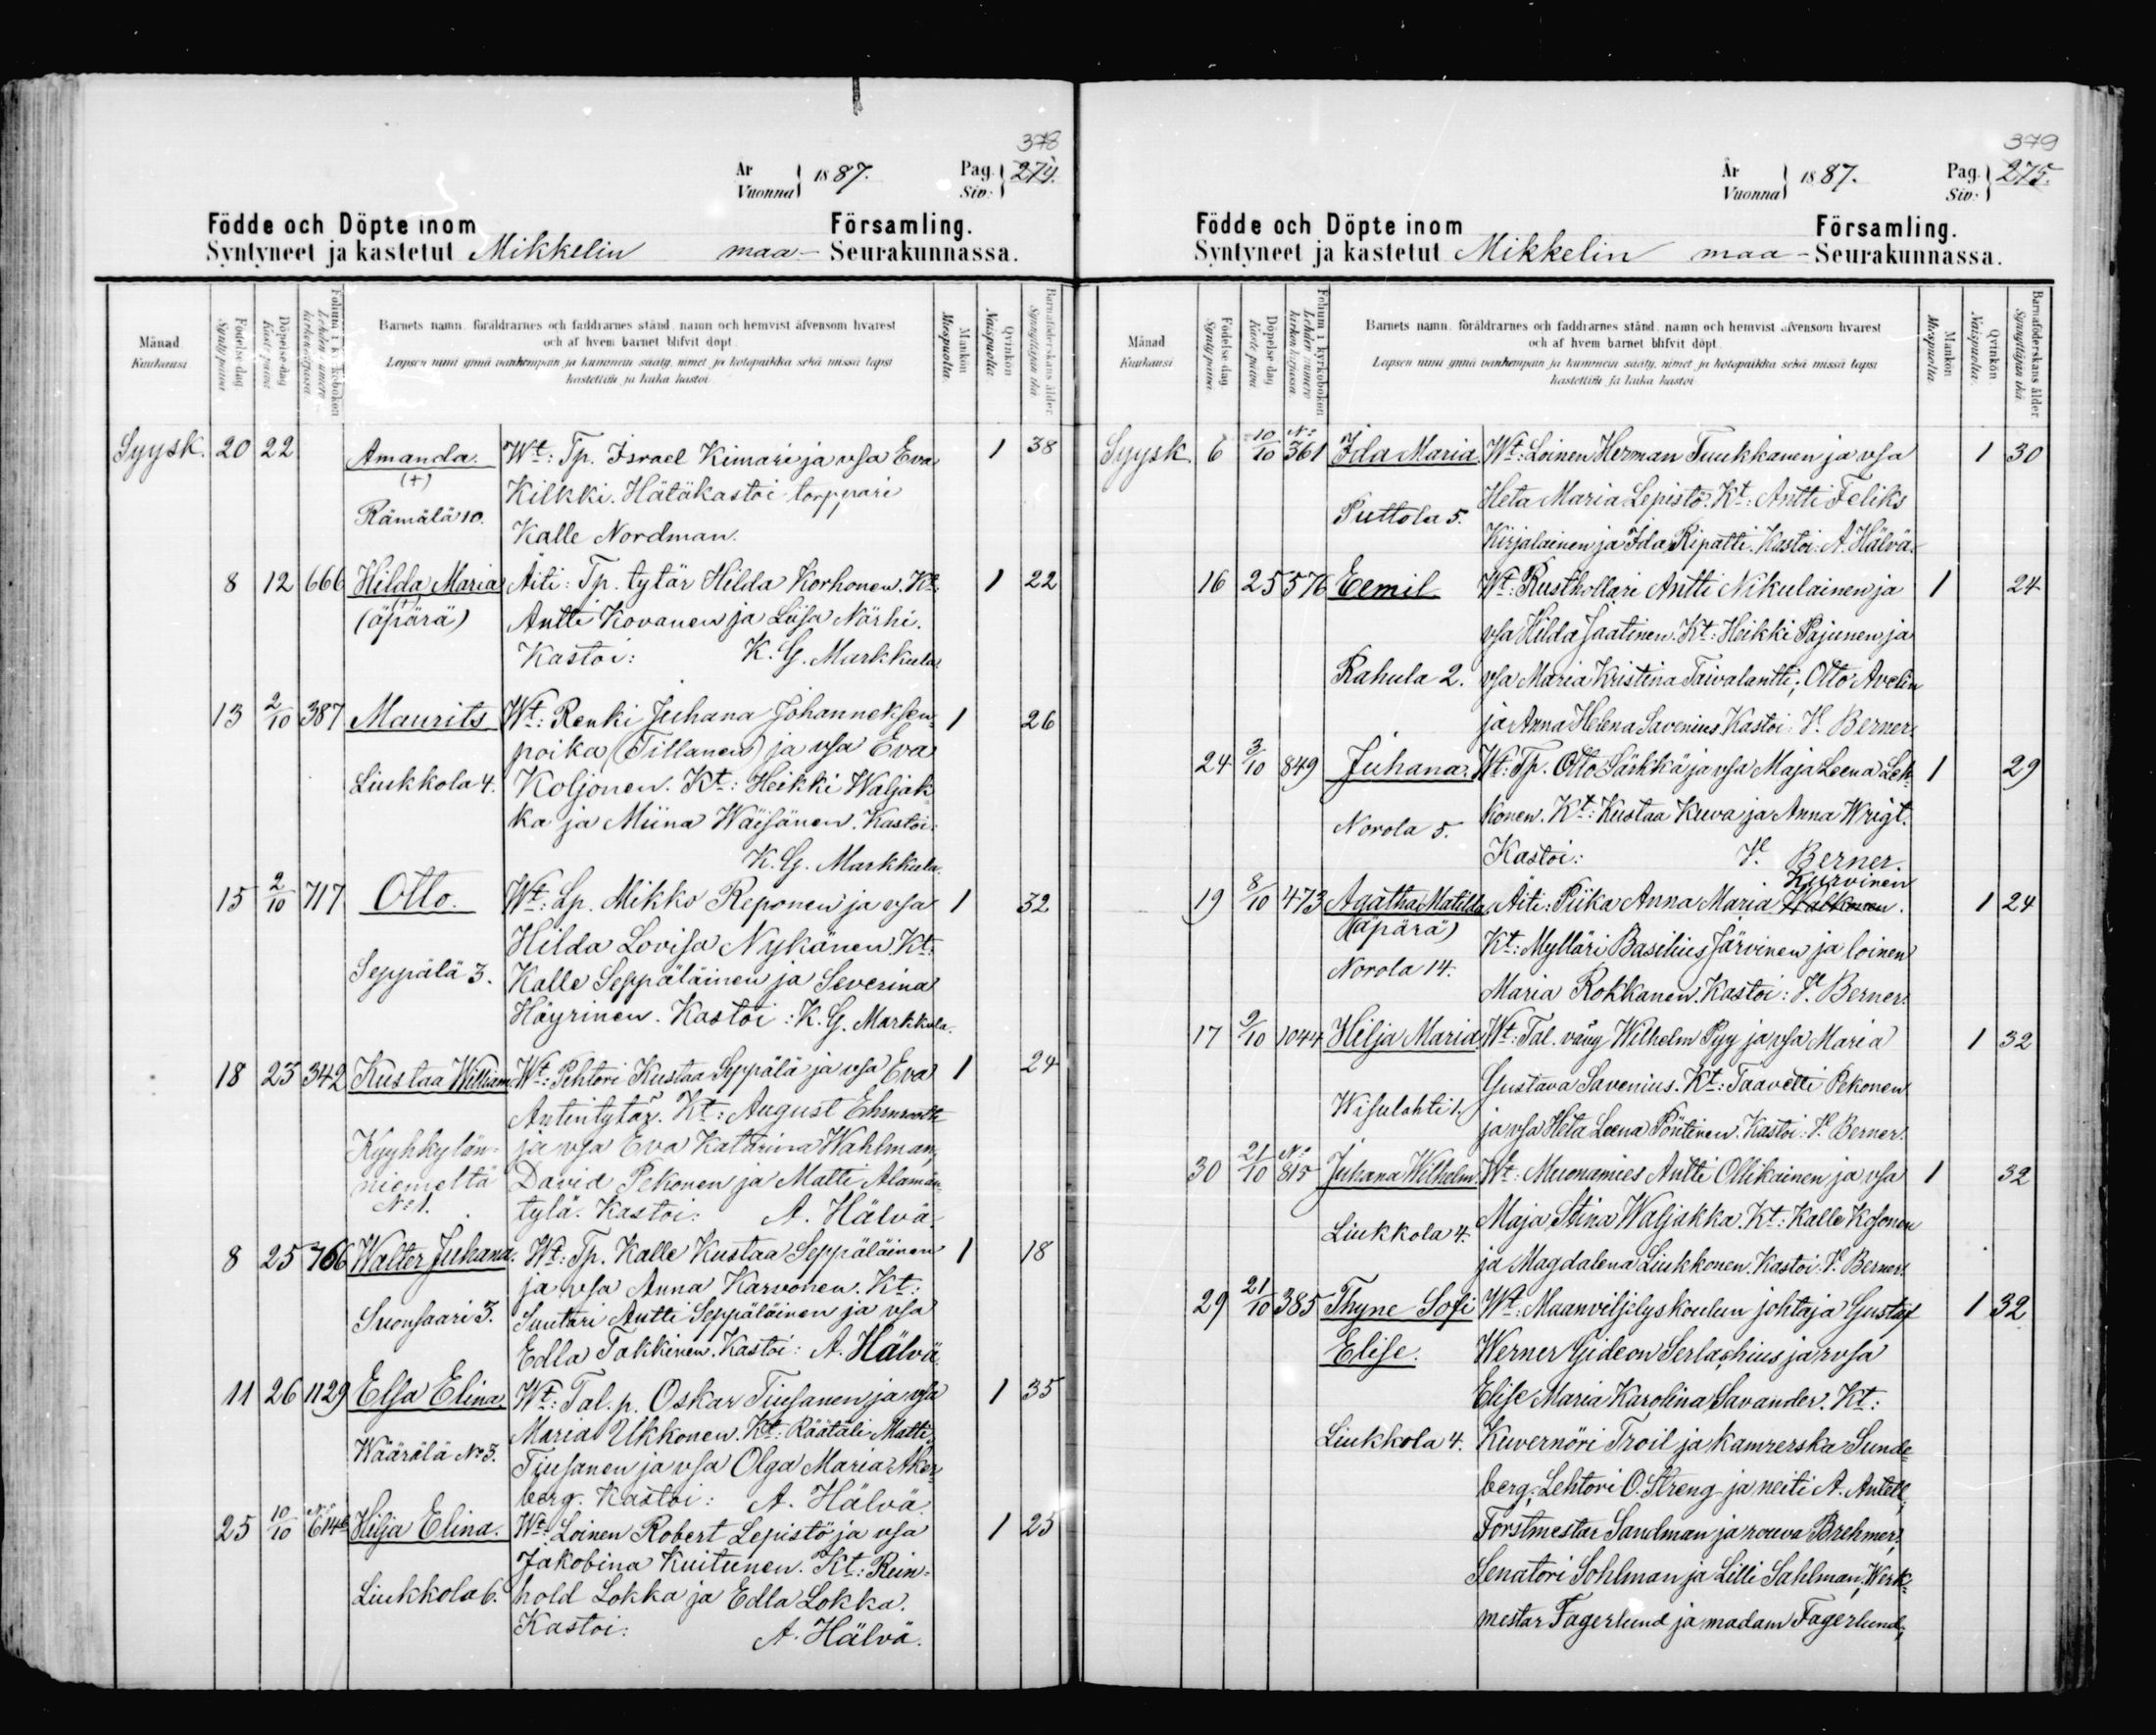 378
År
Vuonna } 1887. Pag. Siv: } 274.
Födde och Döpte inom Församling.
Syntyneet ja kastetut Mikkelin maa- Seurakunnassa.
Månad
Kuukausi
Födelse dag
Synty päivä
Döpelse dag
Kaste päivä
Folium i kyrkoboken
Lehden numero kirkon kirjassa
Barnets namn, föräldrarnes och faddrarnes stånd, namn och hemvist äfvensom hvarest
och af hvem barnet blifvit döpt.
Lapsen nimi ynnä vanhempain ja kummein sääty, nimet ja kotopaikka sekä missä lapsi
kastettiin ja kuka kastoi.
Mankön
Miespuolta.
Qvinkön
Naispuolta.
Barnaföderskans ålder
Synnyttäjän ikä
Syysk. 20 22 Amanda. Wt: Tp. Israel Kimari ja vsa Eva 1 38
(+) Kilkki. Hätäkastoi torppari
Rämälä 10. Kalle Nordman.
8 12 666 Hilda Maria Äiti: Tp. tytär Hilda Korhonen. Kt: 1 22
(äpärä) Antti Kovanen ja Liisa Närhi.
Kastoi: K. G. Markkula
13 2/10 387 Maurits Wt: Renki Juhana Johanneksen 1 26
poika (Tillanen) ja vsa Eva
Liukkola 4. Koljonen. Kt: Heikki Waljak-
ka ja Miina Wäisänen. Kastoi:
K. G. Markkula.
15 2/10 717 Otto. Wt: Lp. Mikko Reponen ja vsa 1 32
Hilda Lovisa Nykänen. Kt:
Seppälä 3. Kalle Seppäläinen ja Severina
Häyrinen. Kastoi: K. G. Markkula.
18 23 342 Kustaa William Wt: Pehtori Kustaa Seppälä ja vsa Eva 1 24
Antintytär. Kt: August
Kyyhkylän- ja vsa Eva Katarina Wahlman,
niemeltä David Pekonen ja Matti Alamän-
No 1. tylä. Kastoi: A. Hälvä.
8 25 766 Walter Juhana. Wt: Tp. Kalle Kustaa Seppäläinen 1 18
ja vsa Anna Karvonen. Kt:
Suonsaari 3. Suutari Antti Seppäläinen ja vsa
Edla Takkinen. Kastoi: A. Hälvä
11 26 1129 Elsa Elina. Wt: Tal. p. Oskar Tiusanen ja vsa 1 35
Maria Ukkonen. Kt: Räätäli Matti
Wäärälä No 3. Tiusanen ja vsa Olga Maria Åker-
berg. Kastoi: A. Hälvä
25 10/10 Hilja Elina. Wt: Loinen Robert Lepistö ja vsa 1 25
Jakobina Kuitunen. Kt: Rein-
Liukkola 6. hold Lokka ja Edla Lokka.
Kastoi: A. Hälvä.
379
År
Vuonna } 1887. Pag. Siv: } 275.
Födde och Döpte inom Församling.
Syntyneet ja kastetut Mikkelin maa- Seurakunnassa.
Månad
Kuukausi
Födelse dag
Synty päivä.
Döpelse dag
Kaste päivä.
Folium i kyrkoboken
Lehden numero kirkon kirjassa
Barnets namn, föräldrarnes och faddrarnes stånd, namn och hemvist äfvensom hvarest
och af hvem barnet blifvit döpt.
Lapsen nimi ynnä vanhempain ja kummein sääty, nimet ja kotopaikka sekä missä lapsi
kastettiin ja kuka kastoi.
Mankön
Miespuolta.
Qvinkön
Naispuolta.
Barnaföderskans ålder
Synnyttäjän ikä
Syysk 6 10/10 No: 361 Ida Maria. Wt: Loinen Herman Tuukkanen ja vsa 1 30
Heta Maria Lepistö. Kt: Antti Feliks
Puttola 5. Kirjalainen ja Ida Ripatti. Kastoi: A. Hälvä.
16 25 576 Eemil Wt: Rusthollari Antti Nikulainen ja 1 24
vsa Hilda Jaatinen. Kt: Heikki Pajunen ja
Rahula 2. vsa Maria Kristina Taivalantti; Otto Avelin
ja Anna Helena Savenius. Kastoi: V. Berner.
24 3/10 849 Juhana. Wt: Tp. Otto Särkkä ja vsa Maja Leena Leh- 1 29
konen. Kt: Kustaa Kuva ja Anna Wrigt.
Norola 5.
Kastoi: V. Berner.
Kurvinen
19 8/10 473 Agatha Matilda Äiti: Piika Anna Maria Walkonen. 1 24
(äpärä) Kt: Mylläri Basilius Järvinen ja loinen
Norola 14. Maria Rokkanen. Kastoi: V. Berner.
17 9/10 1044 Hilja Maria Wt: Tal. väwy Wilhelm Pyy ja vsa Maria 1 32
Gustava Savenius. Kt: Taavetti Pekonen
Wisulahti 1. ja vsa Heta Leena Pöntinen. Kastoi: V. Berner.
30 21/10 No: 815 Juhana Wilhelm Wt: Muonamies Antti Ollikainen ja vsa 1 32
Maja Stina Waljakka. Kt: Kalle Kosonen
Liukkola 4. ja Magdalena Liukkonen. Kastoi: V. Berner.
29 21/10 385 Thyne Sofi Wt: Maanviljelyskoulun johtaja Gustaf 1 32
Elise. Werner Gideon Serlachius ja rvsa
Elise Maria Karolina Savander. Kt:
Liukkola 4. Kuvernöri Troil ja kamrerska Sunde
berg, Lehtori O. Streng ja neiti A. Antell,
Forstmestar Sandman ja rouva Brehmer,
Senatori Sohlman ja Lilli Sahlman, Werk-
mestar Fagerlund ja madam Fagerlund,